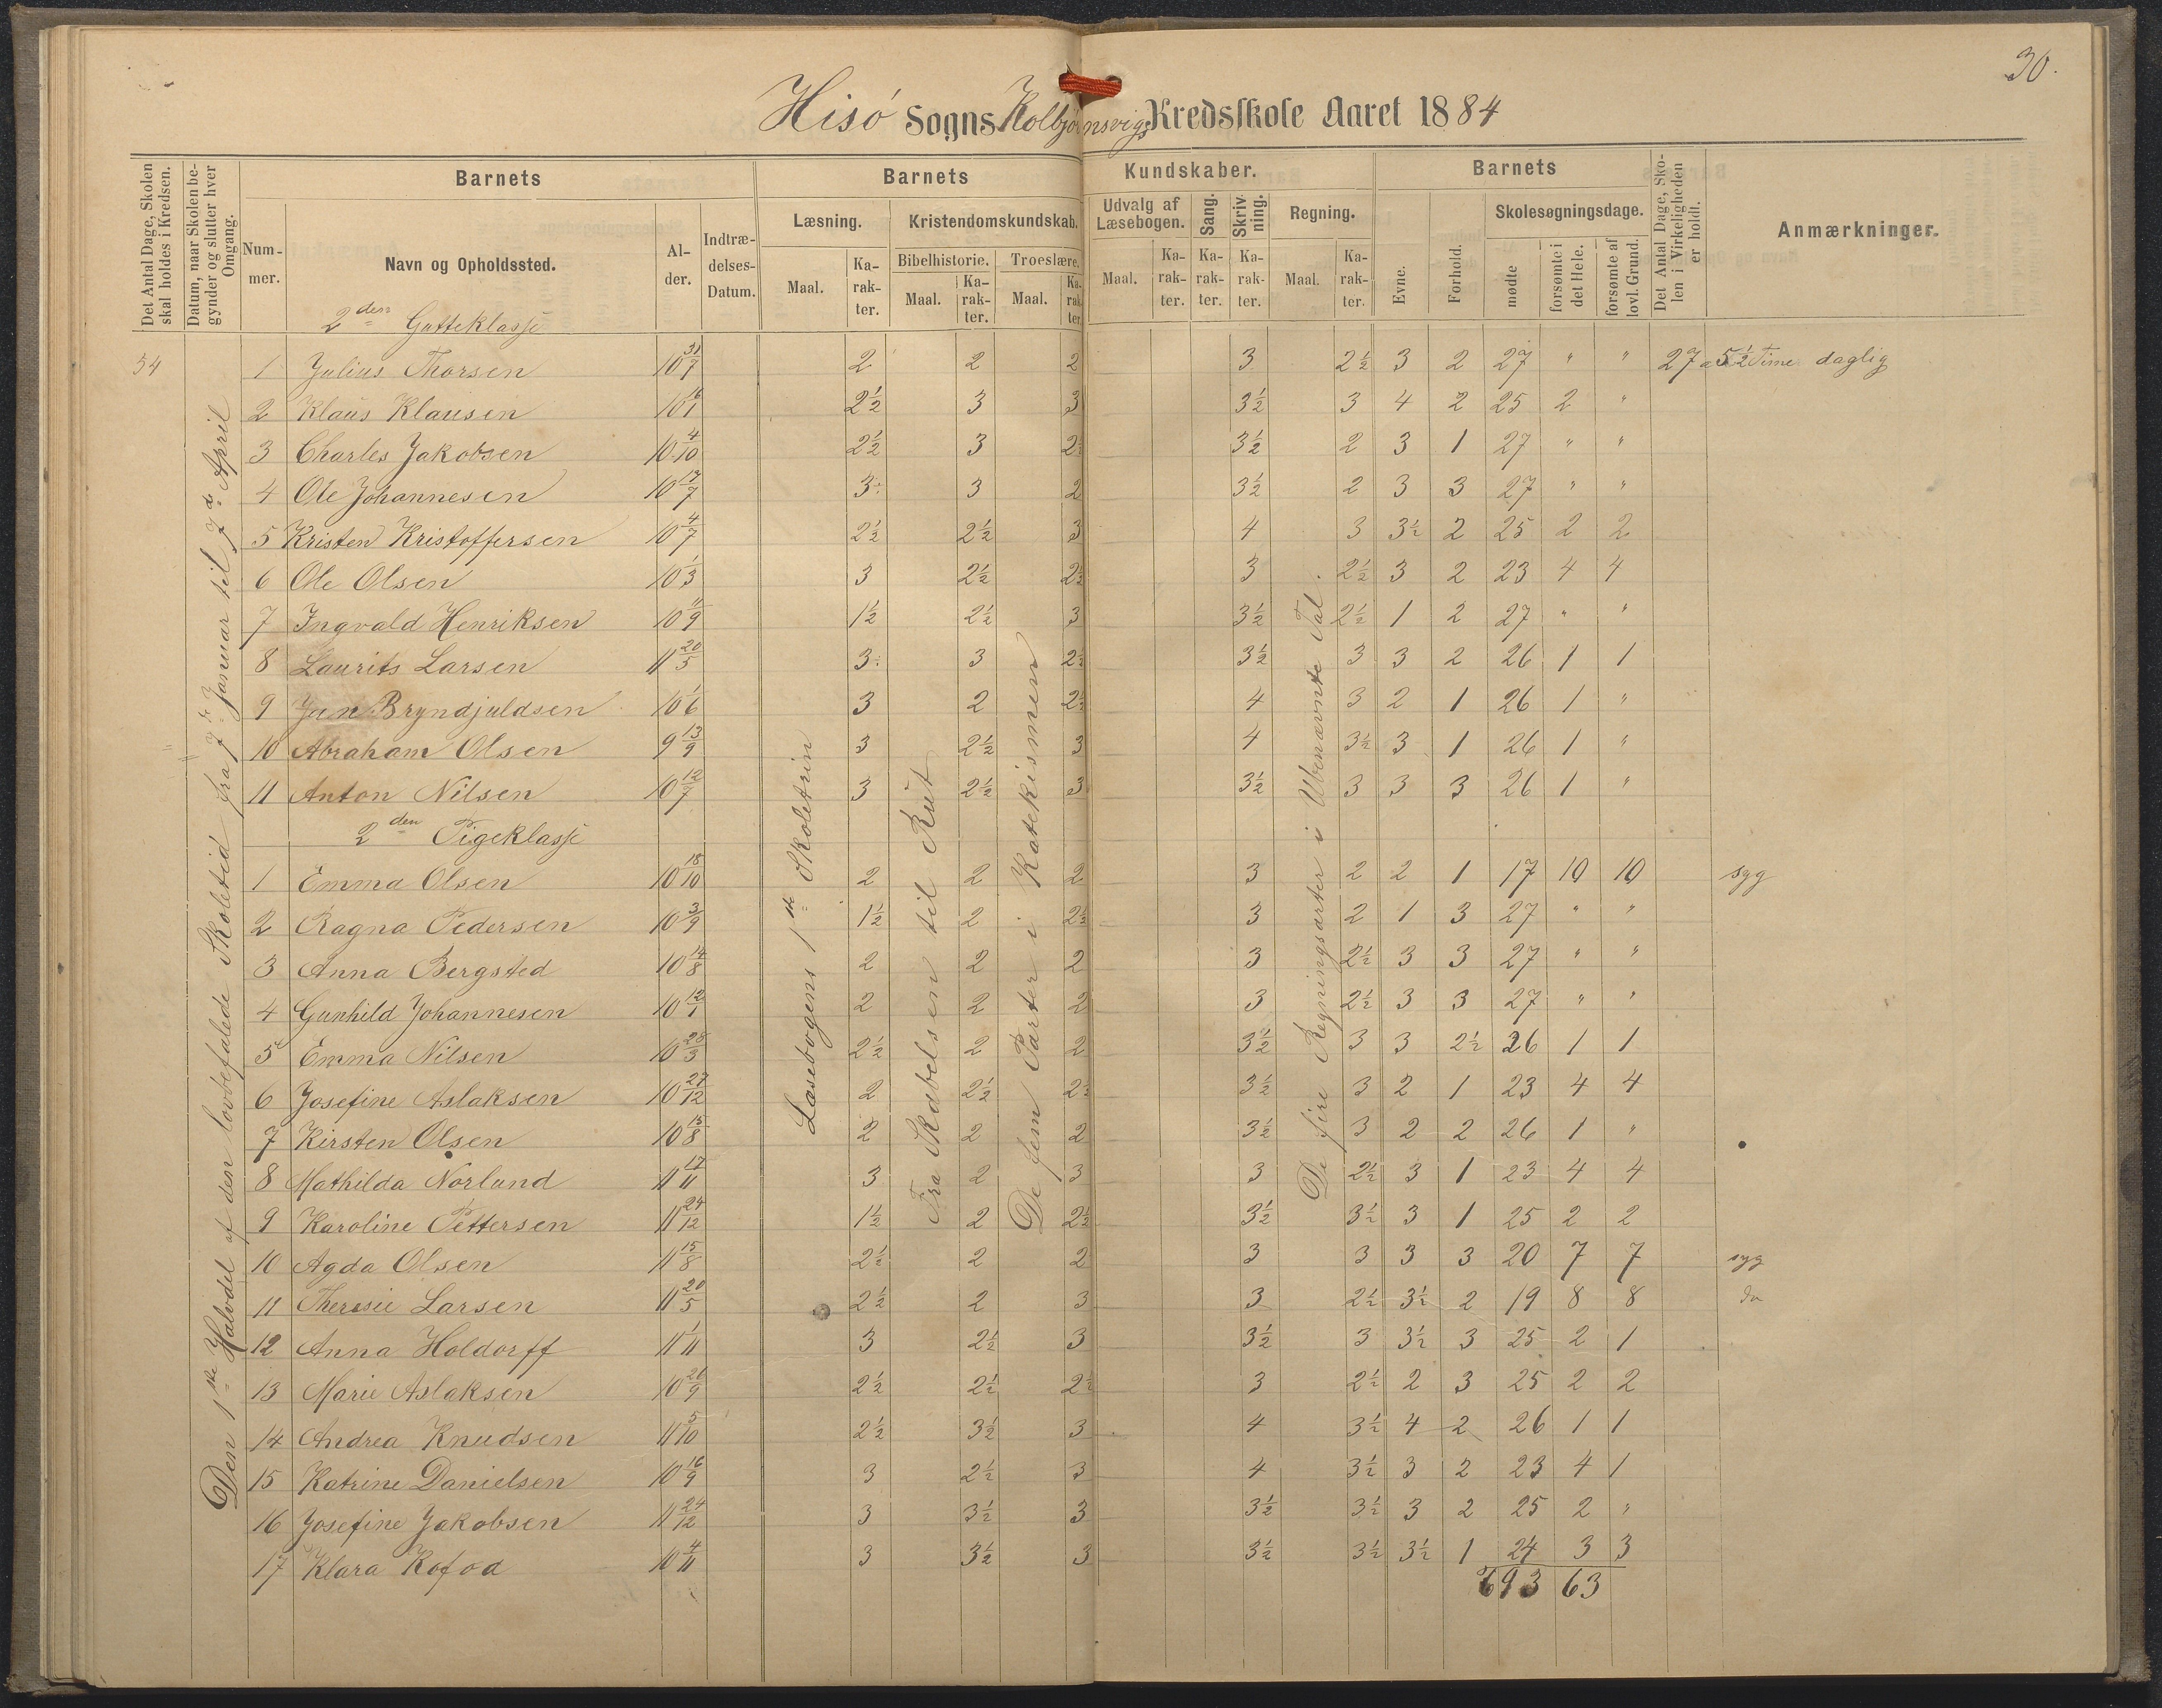 30.
Hisö Sogns Kolbjørnsvigs Kredsskole Aaret 1884
Det Antal Dage, Skolen skal holdes i Kredsen.
Datum, naar Skolen begynder og slutter hver Omgang.
Barnets
Nummer.
Navn og Opholdssted.
Alder.
Indtrædelses-Datum.
Barnets Kundskaber.
Læsning.
Maal.
Karakter.
Kristendomskundskab.
Bibelhistorie.
Maal.
Karakter.
Troeslære.
Maal.
Karakter.
Udvalg af Læsebogen.
Maal.
Karakter.
Sang.
Karakter.
Skrivning.
Karakter.
Regning.
Maal.
Karakter.
Barnets
Evne.
Forhold.
Skolesøgningsdage.
mødte
forsømte i det Hele.
forsømte af lovl. Grund.
Det Antal Dage, Skolen i Virkeligheden er holdt.
Anmærkninger.
2den Gutteklasse
54 1 Julius Thorsen 10 31/7 2 2 2 3 2½ 3 2 27 " " 27 a 5½ Time daglig
2 Klaus Klausen 10 16/1 2½ 3 3 3½ 3 4 2 25 2 "
3 Charles Jakobsen 10 4/10 2½ 3 2½ 3½ 2 3 1 27 " "
4 Ole Johannesen 10 17/7 3÷ 3 2 3½ 2 3 3 27 " "
5 Kristen Kristoffersen 10 4/7 2½ 2½ 3 4 3 3½ 2 25 2 2
6 Ole Olsen 10 1/3 3 2½ 2½ 3 2½ 3 2 23 4 4
7 Ingvald Henriksen 10 11/9 1½ 2½ 3 3½ 2½ 1 2 27 " "
8 Laurits Larsen 11 20/5 3÷ 3 2½ 3½ 3 3 2 26 1 1
9 Jen Bryndjuldsen 10 1/6 3 2 2½ 4 3 2 1 26 1 "
10 Abraham Olsen 9 13/9 3 2½ 3 4 3½ 3 1 26 1 "
11 Anton Nilsen 10 12/7 3 2½ 3 3½ 3 3 3 26 1 "
2den Pigeklasse
1 Emma Olsen 10 18/10 2 2 2 3 2 2 1 17 10 10 syg
2 Ragna Pedersen 10 3/9 1½ 2 2½ 3 2 1 3 27 " "
3 Anna Bergsted 10 14/8 2 2 2 3 2½ 3 3 27 " "
4 Gunhild Johannesen 10 12/1 2 2 2 3 2½ 3 3 27 " "
5 Emma Nilsen 10 28/3 2½ 2 2 3½ 3 3 2½ 26 1 1
6 Josefine Aslaksen 10 27/12 2 2½ 2½ 3½ 3 2 1 23 4 4
7 Kirsten Olsen 10 15/8 2 2 2 3½ 3 2 2 26 1 "
8 Mathilda Norlund 11 17/11 3 2 3 3 2½ 3 1 23 4 4
9 Karoline Pettersen 11 24/12 1½ 2 2½ 3½ 3½ 3 1 25 2 2
10 Agda Olsen 11 15/8 2½ 2 2 3 3 3 3 20 7 7 syg
11 Theresie Larsen 11 20/5 2½ 2 3 3 2½ 3½ 2 19 8 8 do
12 Anna Holdorff 11 1/11 3 2½ 3 3½ 3 3½ 3 25 2 1
13 Marie Aslaksen 10 26/9 2½ 2½ 2½ 3 2½ 2 3 25 2 2
14 Andrea Knudsen 11 5/10 2½ 3½ 3 4 3½ 4 2 26 1 1
15 Katrine Danielsen 10 16/9 3 2½ 3 4 3½ 3 2 23 4 1
16 Josefine Jakobsen 11 24/12 3 3½ 3 3½ 3½ 3 2 25 2 "
17 Klara Kofod 10 4/11 3 3½ 3 3½ 3½ 3½ 1 24 3 3
693 63
Den 1ste Halvdel af den lovbefalede Skoletid fra 7de Januar til 7de April
Læsebogens 1ste Skoletrin
Fra Skabelsen til Rut
De fem Parter i Katekismen
De fire Regningsarter i Ubenævnte Tal.